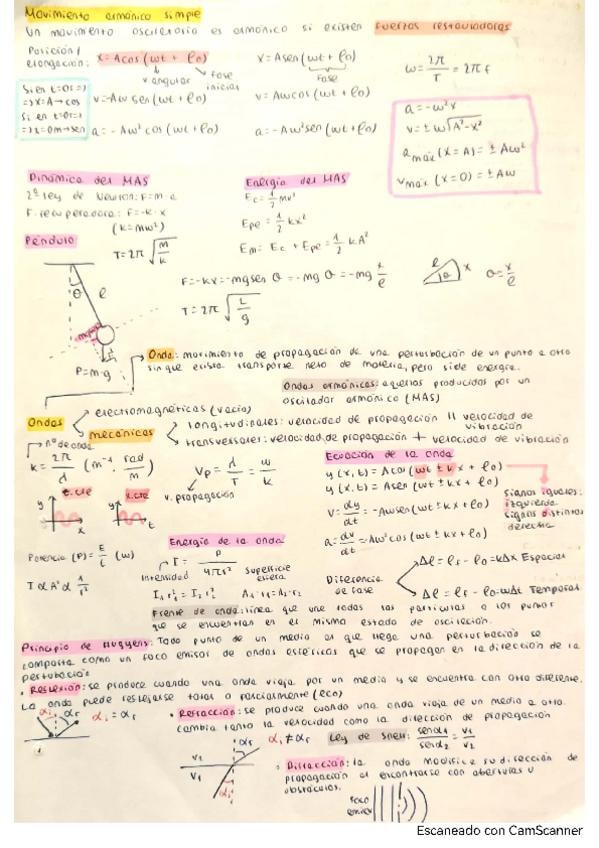 Movimiento armónico simple
Un movimiento oscilatorio es armónico si existen fuerzas restauradoras
Posición /
elongación: x = A cos (ωt + φ0)
x = A sen (ωt + φ0)
ω = 2π/T = 2π f
v angular
fase inicial
Fase
Si en t=0s =>
=> x = A → cos
Si en t=0s =>
=> x = 0m → sen
v = -Aω sen (ωt + φ0)
v = Aω cos (ωt + φ0)
a = -Aω² cos (ωt + φ0)
a = -Aω² sen (ωt + φ0)
a = -ω² x
v = ± ω√A² - x²
a máx (x = A) = ± Aω²
v máx (x = 0) = ± Aω
Dinámica del MAS
2ª ley de Newton: F = m·a
F. recuperadora: F = -k·x
(k = mω²)
T = 2π √m/k
Energía del MAS
Ec = 1/2 mv²
Epe = 1/2 kx²
Em = Ec + Epe = 1/2 kA²
Péndulo
F = -kx = -mg sen θ = -mg θ = -mg x/l
l x
θ = x/l
T = 2π √L/g
θ l
P = m·g
Onda: movimiento de propagación de una perturbación de un punto a otro
sin que exista transporte neto de materia, pero si de energía.
Ondas armónicas: aquellas producidas por un
oscilador armónico (MAS)
Ondas
electromagnéticas (vacío)
mecánicas
longitudinales: velocidad de propagación || velocidad de
vibración
transversales: velocidad de propagación + velocidad de vibración
nº de onda
k = 2π/λ (m⁻¹ · rad/m)
Vp = λ/T = ω/k
v. propagación
Ecuación de la onda
y (x, t) = A cos (ωt ± kx + φ0)
y (x, t) = A sen (ωt ± kx + φ0)
v = dy/dt = -Aω sen (ωt ± kx + φ0)
a = dv/dt = -Aω² cos (ωt ± kx + φ0)
Signos iguales:
izquierda
signos distintos
derecha
t. cte
y
x
x. cte
y
t
Potencia (P) = E/t (W)
I ∝ A² ∝ 1/r²
Energía de la onda
I = P/4πr²
Intensidad
Superficie
esfera
I1 r1² = I2 r2²
A1·r1 = A2·r2
Diferencia
de fase
Δφ = φF - φ0 = kΔx Espacial
Δφ = φF - φ0 = ωΔt Temporal
Frente de onda: línea que une todas las partículas o los puntos
que se encuentran en el mismo estado de oscilación.
Principio de Huygens: Todo punto de un medio al que llega una perturbación se
comporta como un foco emisor de ondas esféricas que se propagan en la dirección de la
perturbación
· Reflexión: se produce cuando una onda viaja por un medio y se encuentra con otro diferente.
La onda puede reflejarse total o parcialmente (eco)
αi αr αi = αr
· Refracción: se produce cuando una onda viaja de un medio a otro.
cambia tanto la velocidad como la dirección de propagación
αr
αi ≠ αr
Ley de Snell: sen α1/sen α2 = v1/v2
V2
V1
αi
· Difracción: la onda modifica su dirección de
propagación al encontrarse con aberturas u
obstáculos.
foco
emisor
Escaneado con CamScanner